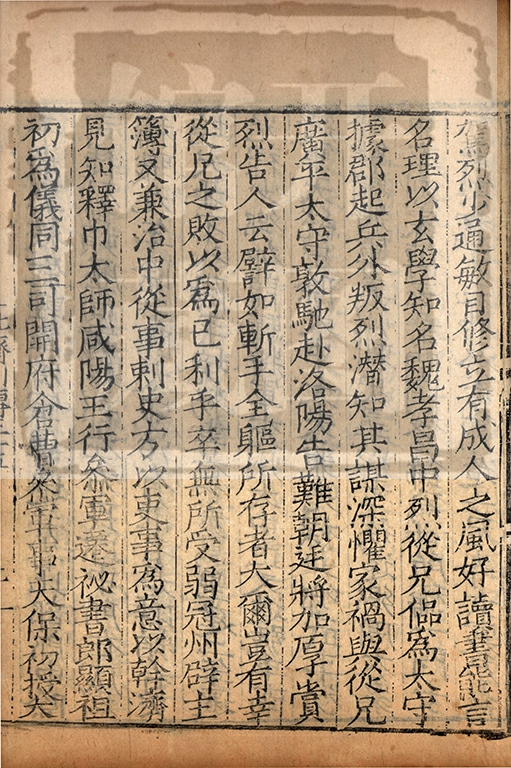 駕烈少通敏自修立有成人之風好讀書能言
名理以玄學知名魏孝昌中烈從兄偘為太守
據郡起兵外叛烈潛知其謀深懼家禍與從兄
廣平太守敦馳赴洛陽告難朝廷將加厚賞
烈告人云譬如斬手全軀所存者大爾豈有幸
從兄之敗以為己利乎卒無所受弱冠州辟主
簿又兼治中從事刺史方以吏事為意以幹濟
見知釋巾太師咸陽王行叅軍遷祕書郎顯祖
初為儀同三司開府倉曹叅軍事天保初授太